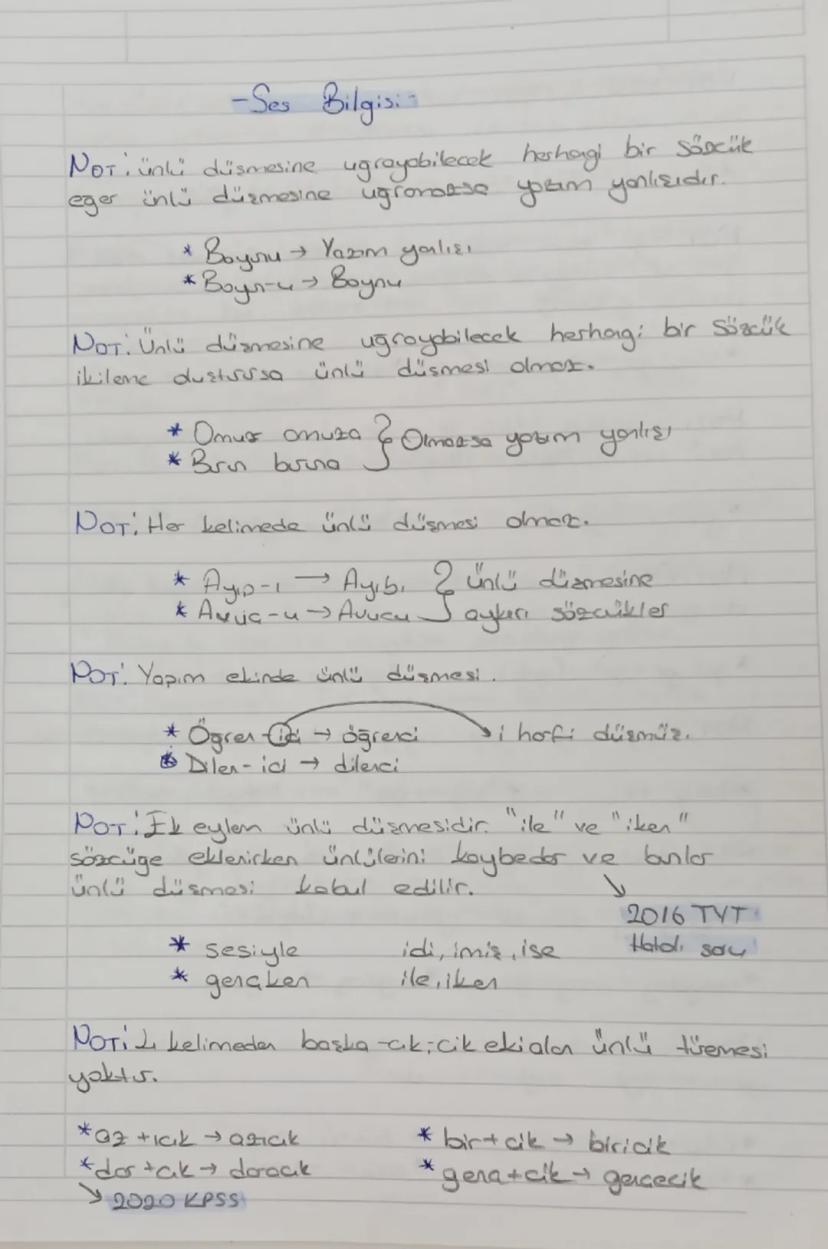 -Ses Bilgisi-
NOT: ünlü düşmesine uğrayabilecek herhangi bir sözcük
eğer ünlü düşmesine uğramazsa yazım yanlışıdır.
* Boyunu → Yazım yanlışı
* Boyn-u → Boynu
NOT: Ünlü düşmesine uğrayabilecek herhangi bir sözcük
ikileme oluşturursa ünlü düşmesi olmaz.
* Omuz omuza } Olmazsa yazım yanlışı
* Burun buruna
NOT: Her kelimede ünlü düşmesi olmaz.
* Ayıp-ı → Ayıbı } Ünlü düşmesine
* Avuç-u → Avucu aykırı sözcükler
NOT: Yapım ekinde ünlü düşmesi.
* Öğren-ici → öğrenci → i harfi düşmüş.
* Dilen-ici → dilenci
NOT: Ek eylem ünlü düşmesidir. "ile" ve "iken"
sözcüğe eklenirken ünlülerini kaybeder ve bunlar
ünlü düşmesi kabul edilir.
2016 TYT
Hatalı soru
* sesiyle idi, imiş, ise
* gençken ile, iken
NOT: 4 kelimeden başka -cık; cik eki alan ünlü türemesi
yoktur.
* az +ıcık → azıcık * bir+cik → biricik
* dar +cık → daracık * genç+cik → gencecik
2020 KPSS